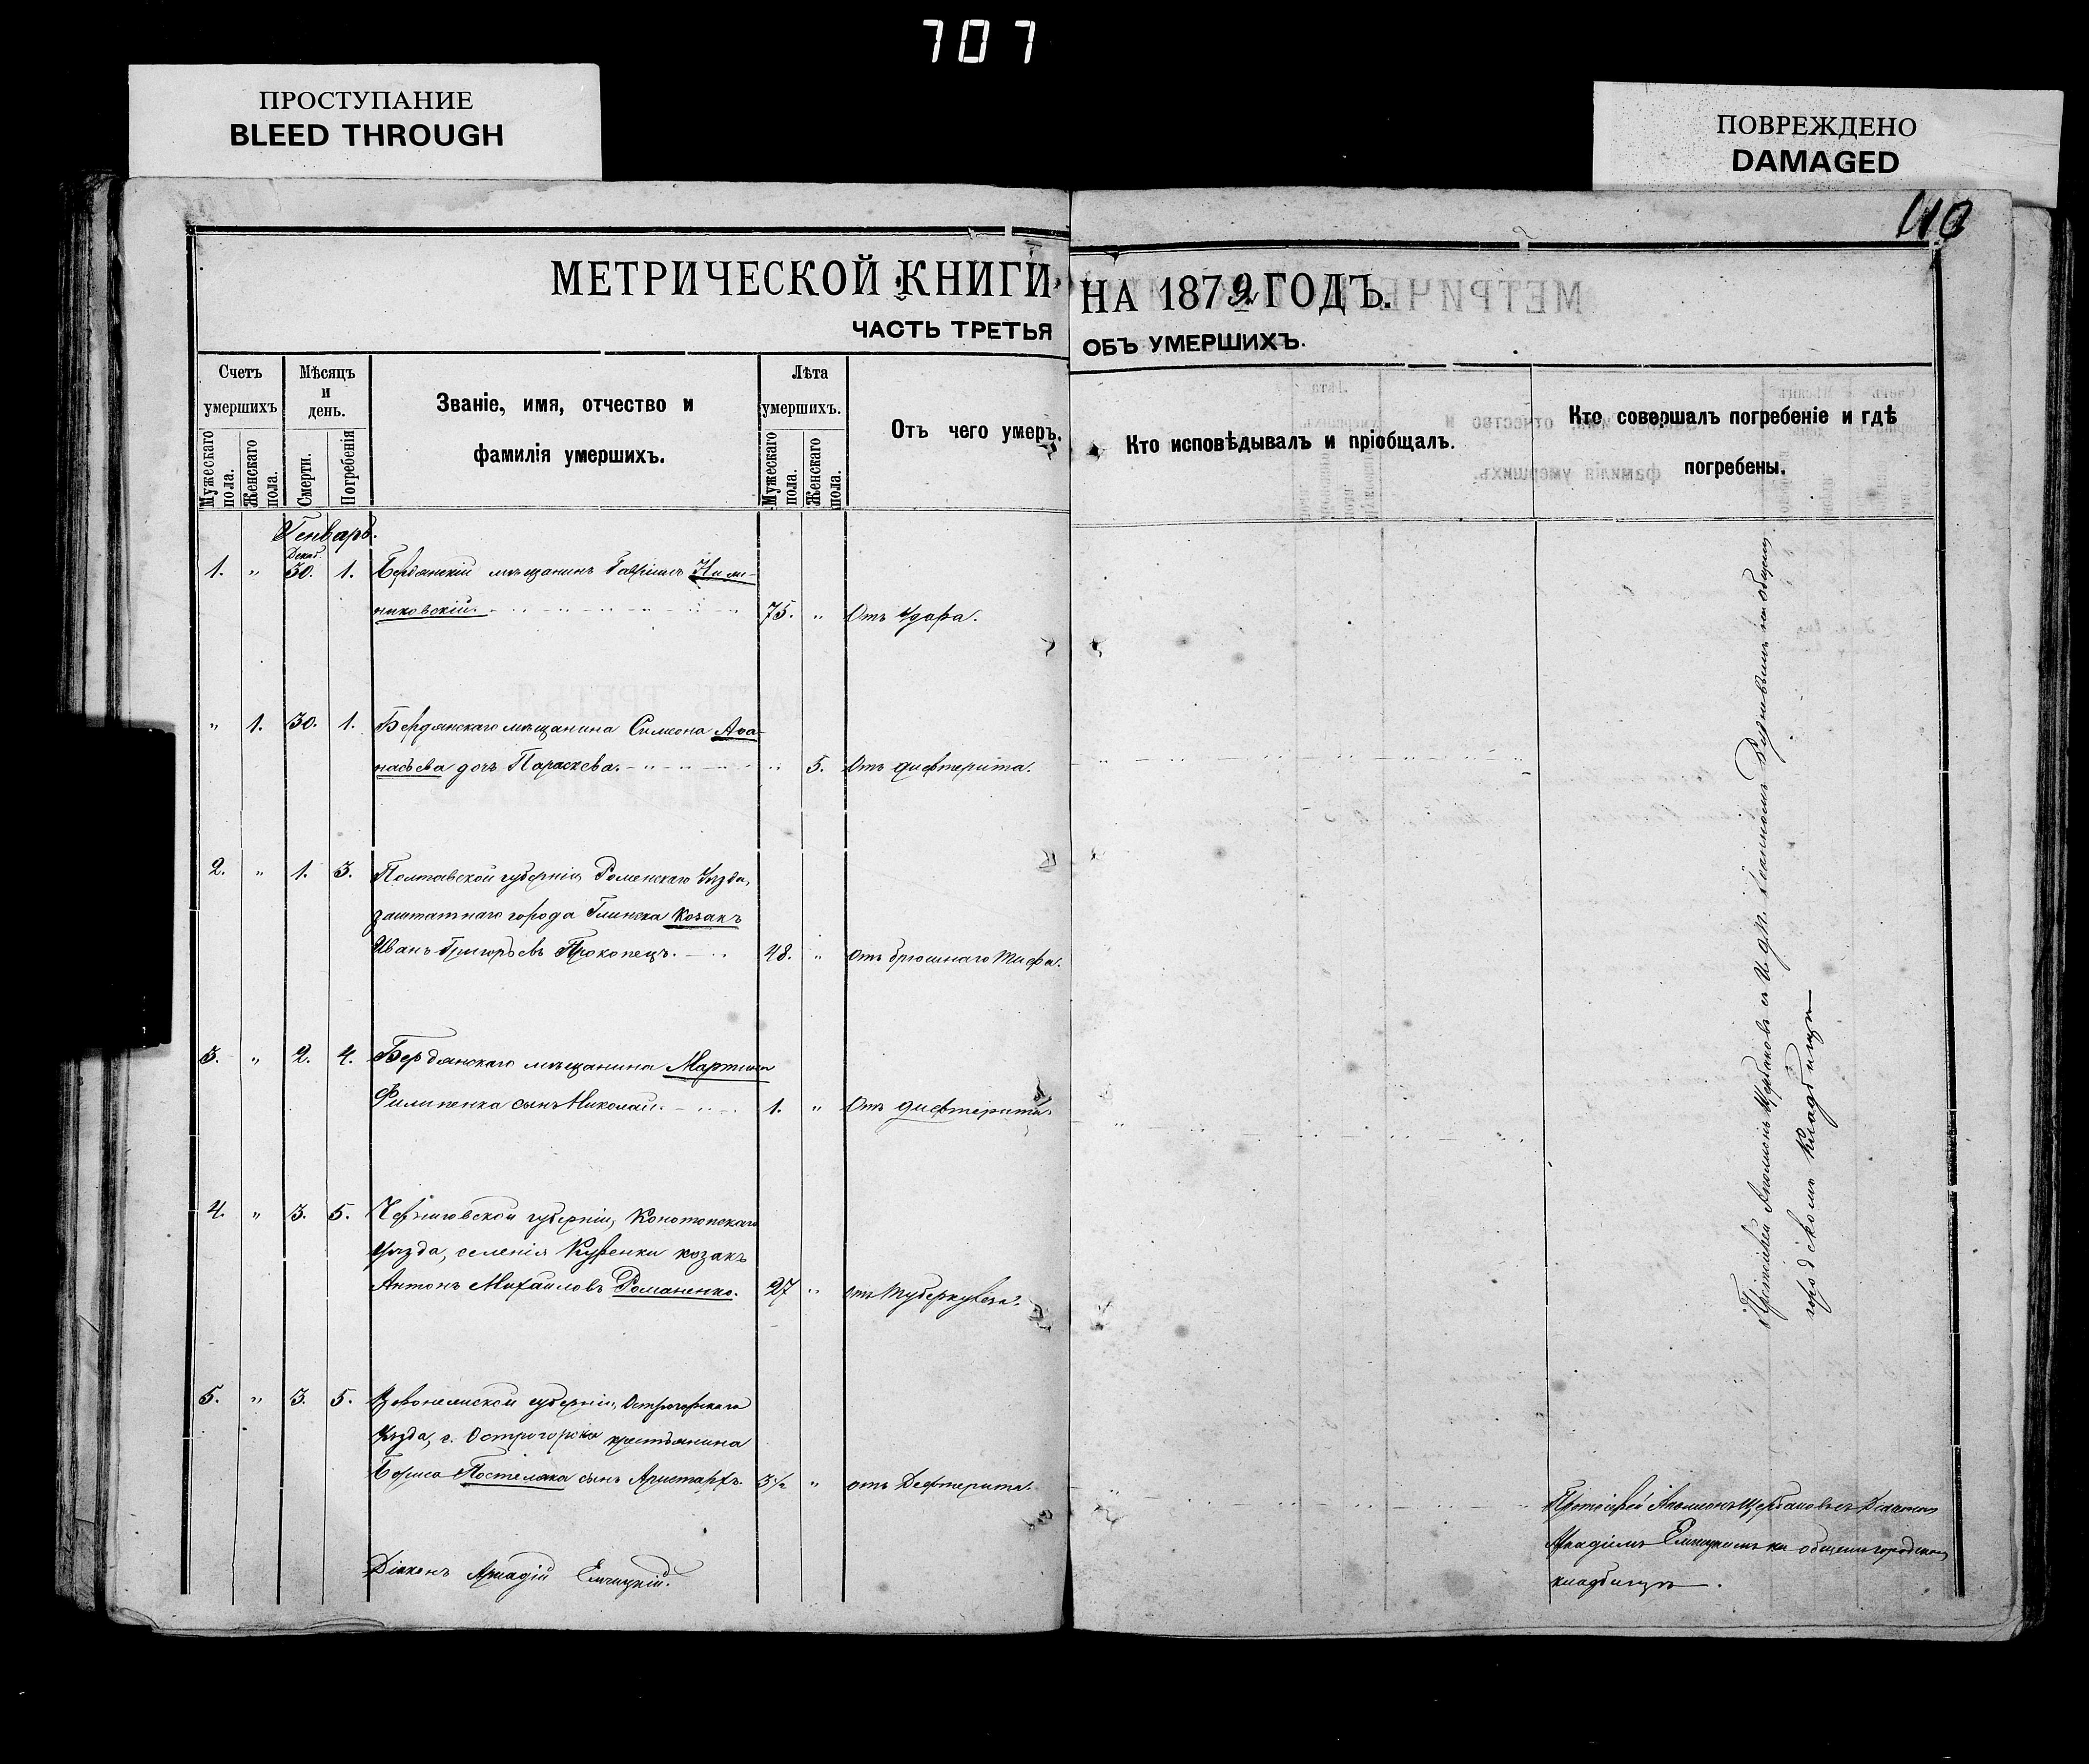 707
ПРОСТУПАНИЕ
BLEED THROUGH
ПОВРЕЖДЕНО
DAMAGED
МЕТРИЧЕСКОЙ КНИГИ НА 1879 ГОДЪ.
ЧАСТЬ ТРЕТЬЯ ОБЪ УМЕРШИХЪ.
Счетъ умершихъ
Мужескаго пола.
Женскаго пола.
Мѣсяцъ и день.
Смерти.
Погребенія
Званіе, имя, отчество и
фамилія умершихъ.
Лѣта умершихъ.
Мужескаго пола.
Женскаго пола.
Отъ чего умеръ.
Кто исповѣдывалъ и пріобщалъ.
Кто совершалъ погребеніе и гдѣ
погребены.
Генварь.
Декаб.
1. " 30. 1. Бердянскій мѣщанинъ Гавріилъ
75. " Отъ удара.
" 1. 30. 1. Бердянскаго мѣщанина Симеона Аѳа-
насьева дочь Параскева. " 5. Отъ дифтерита.
2. " 1. 3. Полтавской губерніи, Роменскаго Уѣзда,
заштатнаго города Глинска козакъ
Иванъ Григорьевъ Прокопецъ. 48. " Отъ брюшнаго тифа.
3. " 2. 4. Бердянскаго мѣщанина Мартина
Филипенка сынъ Николай. 1. " Отъ дифтерита.
4. " 3. 5. Черниговской губерніи, Конотопскаго
уѣзда, селенія козакъ
Антонъ Михайловъ Романенко. 27 " отъ туберкулеза.
5. " 3. 5. Воронежской губерніи, Острогожскаго
Уѣзда, г. крестьянина
Бориса Постелака сынъ Аристархъ. 3½ " отъ Дефтерита.
Діаконъ Аркадій
Протоіерей Щербаковъ съ И. д. п. Руднѣвымъ на общемъ
городскомъ кладбищѣ
Протоіерей Щербаковъ съ Діакономъ
Аркадіемъ на общемъ городскомъ
кладбищѣ.